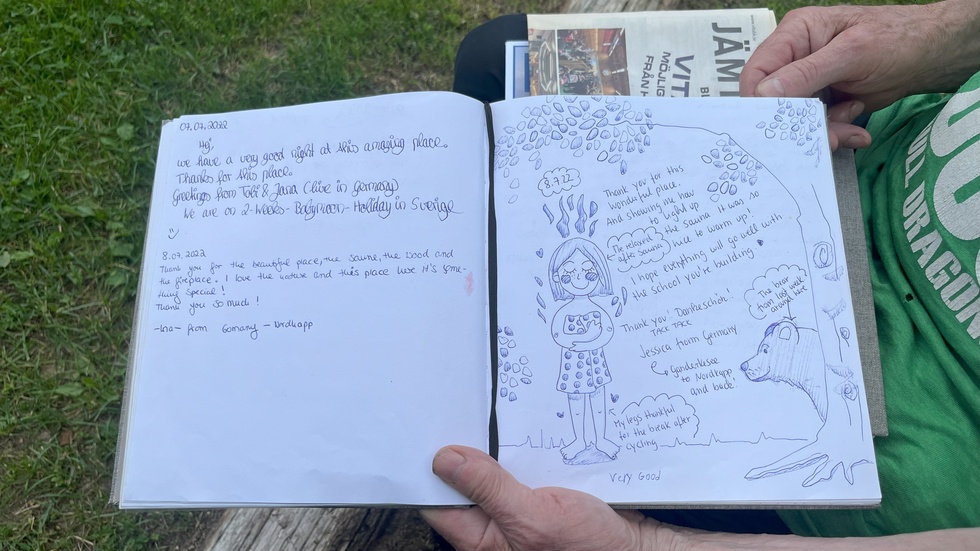 07.07.2022
Hej,
we have a very good night at this amazing place.
Thanks for this place.
Greetings from Tobi & Jana (live in Germany)
We are on 2-weeks-Babymoon-Holiday in Sverige
8.07.2022
Thank you for the beautiful place, the sauna, the wood and
the fireplace. I love the nature and this place here it's some-
thing special!
Thank you so much!
from Germany - Nordkapp
8.7.22
Thank you for this
wonderful place.
And showing me how
to light up
the sauna. It was so
nice to warm up!
Me relaxed
after sauna
I hope everything will go well with
the school you're building
The bear
from last week
around here
Thank you! Dankeschön!
TACK TACK
Jessica from Germany
to Nordkapp
and back!
My legs thankful
for the break after
cycling
Very Good
JÄM
VITA
MÖJLIG
FRÅN H
ULT DRAGON